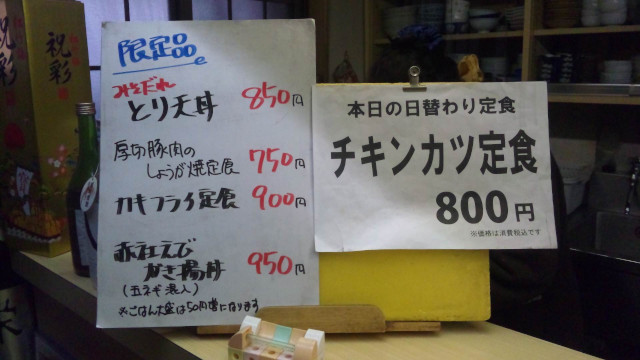 限定品
みそだれ
とり天丼 850円
厚切豚肉の
しょうが焼定食 750円
カキフライ定食 900円
赤社えび
かき揚丼 950円
(玉ネギ混入)
※ごはん大盛は50円増になります
本日の日替わり定食
チキンカツ定食
800円
※価格は消費税込です
祝彩
祝彩